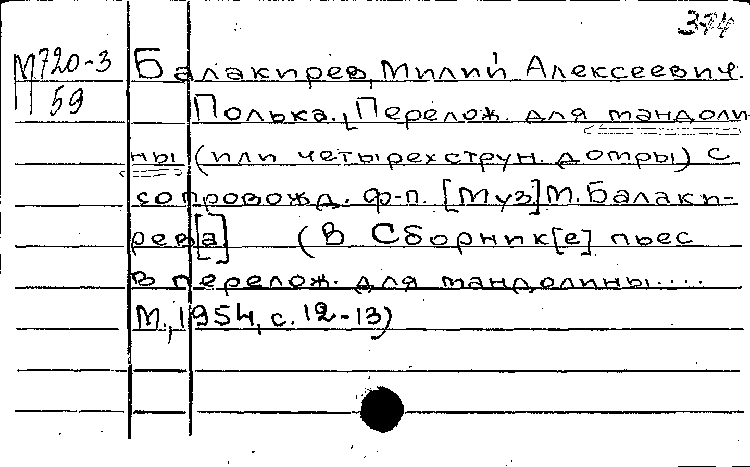 374
М720-3 Балакирев, Милий Алексеевич.
59 Полька. Перелож. для мандоли
ны (или четырехструн. домры) с
сопровожд. ф-п. [Муз] М. Балаки-
рев[а] (В Сборник[е] пьес
в перелож. для мандолины....
М., 1954, с. 12-13)